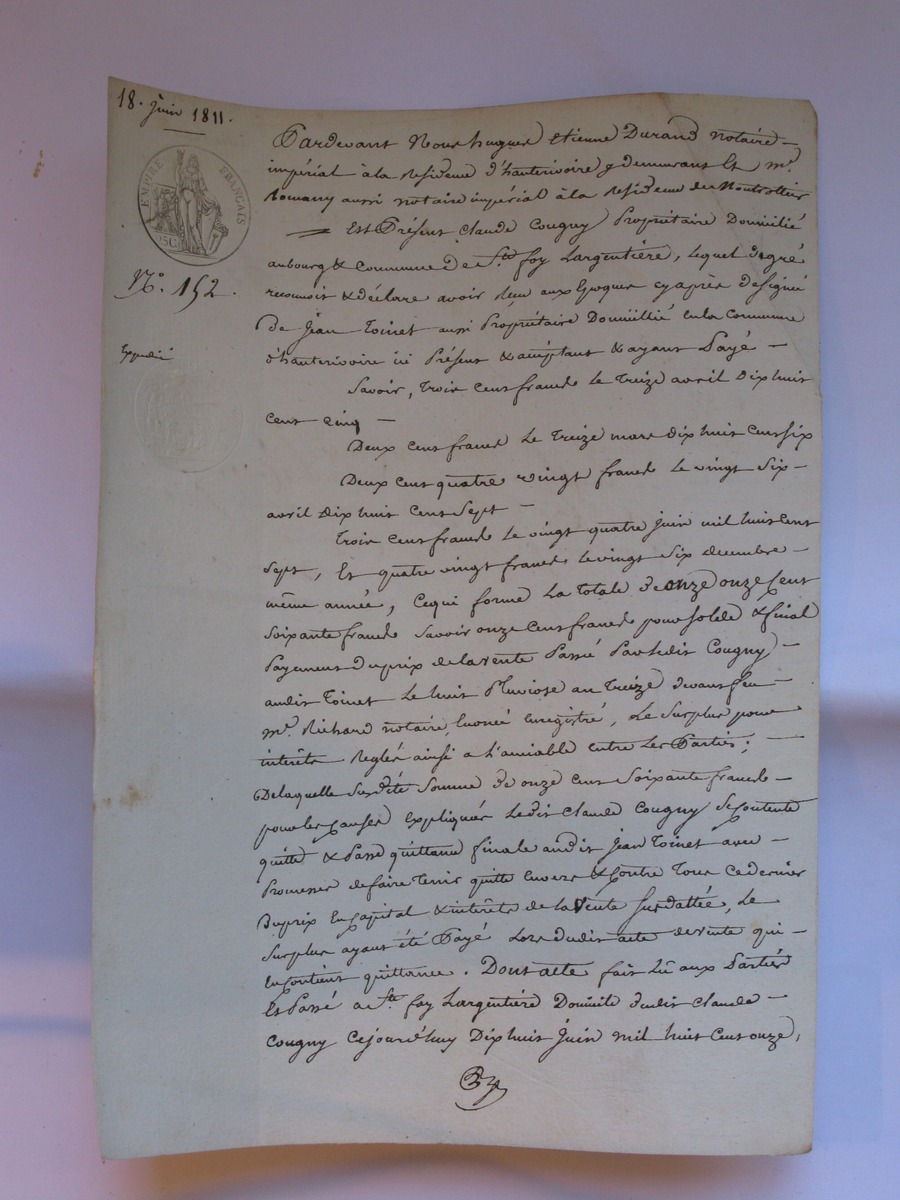 18. juin 1811.
EMPIRE FRANÇAIS
25C.
N.° 152.
Expedié
Pardevant Nous hugues etienne Durand notaire
impérial à la Residence d'hauterivoire y demeurant Et m.e
Romany aussi notaire impérial à la Residence de Montrottier
Est Présent Claude Cougny Propriétaire Domicilié
au bourg & commune de S.te foy Largentière, lequel de gré
reconnoit & déclare avoir Reçu aux Epoques cy après designé
de Jean Toinet aussi Propriétaire Domicillié en la Commune
d'hauterivoire ici Présent & acceptant & ayant Payé —
Savoir, Trois Cent francs le Treize avril Dix huit
cent cinq —
Deux cent francs Le Treize mars dix huit cent six
Deux cent quatre vingt francs Le vingt Six —
avril Dix huit Cent Sept —
Trois cent francs Le vingt quatre juin mil huit cent
sept, Et quatre vingt francs Le vingt Six decembre —
même année, Ce qui forme La totale de onze onze Cent
Soixante francs Savoir onze Cent francs pour Solde & final
Payement du prix de la vente Passé Par ledit Cougny —
audit Toinet Le huit Pluviose an Treize devant feu —
m.e Richard notaire, Enoncé Enregistré, Le Surplus pour
intérêts Reglés ainsi a l'amiable entre Les Parties; —
De laquelle Susdite Somme de onze cent Soixante francs —
pour les Causes Expliquées Ledit Claude Cougny Se Contente
quitte & Passe quittance finale audit Jean Toinet avec —
Promesses de faire Tenir quitte Envers & Contre Tous Ce dernier
Du prix En Capital & intérêts de la Vente Susdattée, Le
Surplus ayant été Payé Lors dudit acte de vente qui —
En Contient quittance. Dont acte fait Lû aux Parties
Et Passé a S.te foy Largentière Domicile dudit Claude —
Cougny Cejourd'huy Dix huit Juin mil huit Cent onze,